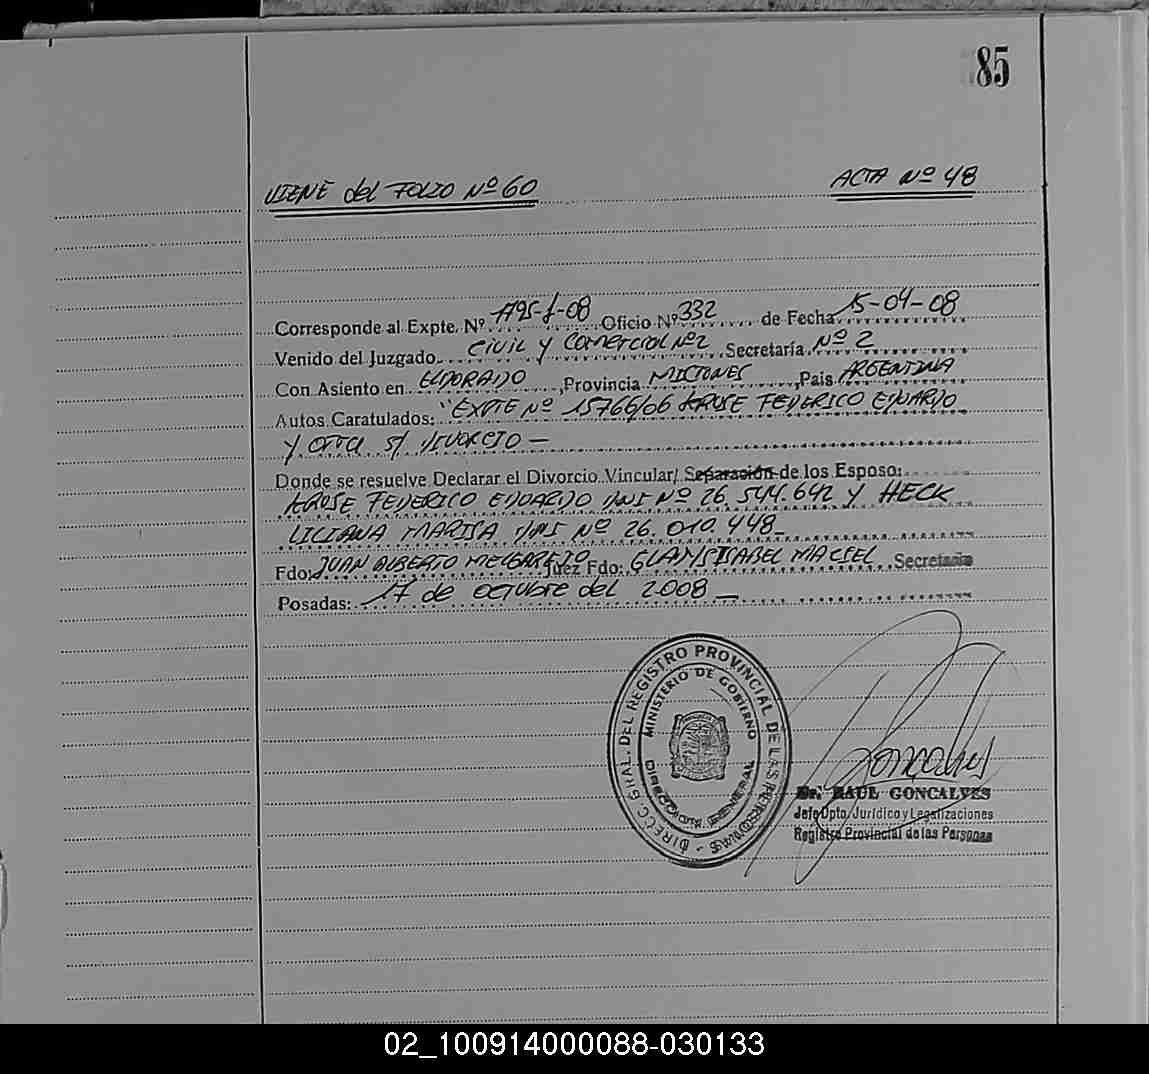 85
VIENE del FOLIO Nº 60
ACTA Nº 48
Corresponde al Expte. Nº 1795-f-08 Oficio Nº 332 de Fecha 15-04-08
Venido del Juzgado CIVIL y Comercial Nº2, Secretaría Nº 2
Con Asiento en ELDORADO, Provincia MISIONES, Pais ARGENTINA
Autos Caratulados: "EXPTE Nº 15766/06 KRUSE FEDERICO EDUARDO
y OTRA S/ DIVORCIO —
Donde se resuelve Declarar el Divorcio Vincular/ Separación de los Esposo:
KRUSE FEDERICO EDUARDO DNI Nº 26.544.642 y HECK
LILIANA MARISA DNI Nº 26.010.448
Fdo: JUAN ALBERTO MELGAREJO Juez Fdo: GLADYS ISABEL MACIEL, Secretaria
Posadas: 17 de octubre del 2008 —
DIRECC. GRAL. DEL REGISTRO PROVINCIAL DE LAS PERSONAS
MINISTERIO DE GOBIERNO
DIRECCION GENERAL
Goncalves
Dr. RAUL GONCALVES
Jefe Dpto. Jurídico y Legalizaciones
Registro Provincial de las Personas
02_100914000088-030133